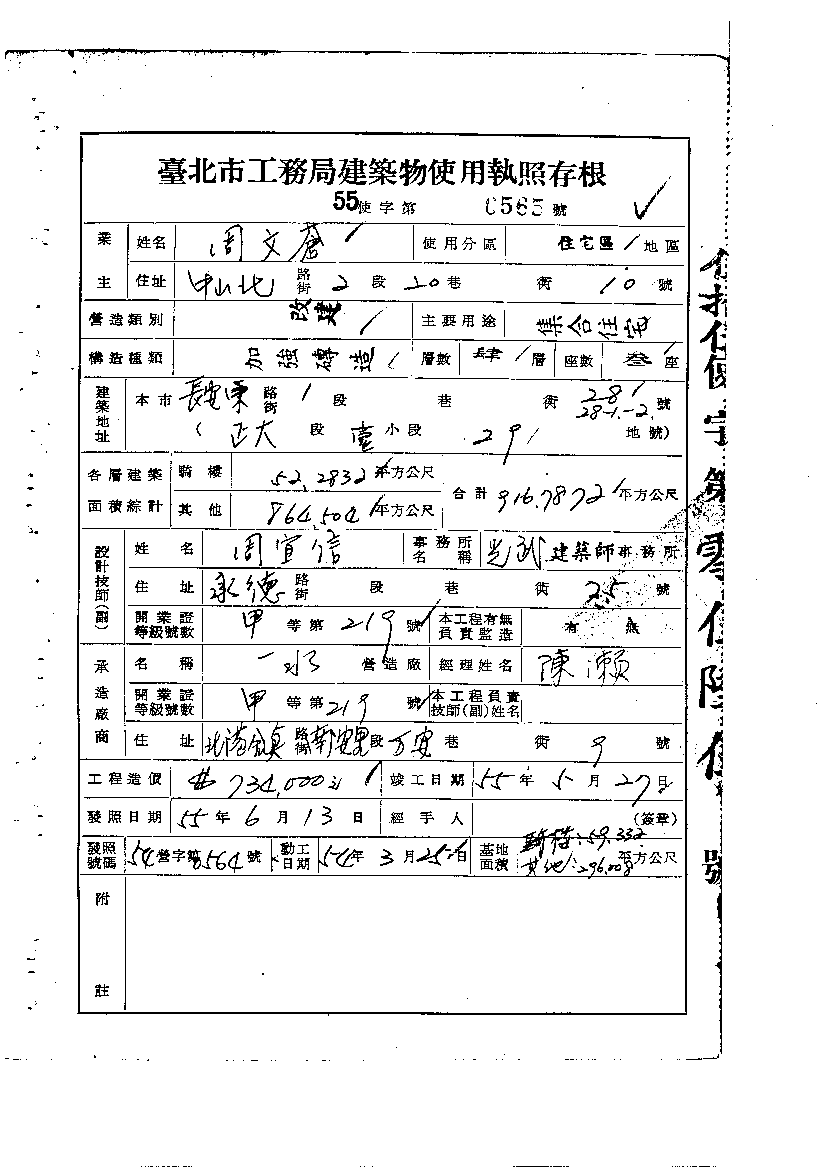 臺北市工務局建築物使用執照存根
55使字第 0565 號
業主 姓名 周文蒼 使用分區 住宅區 地區
住址 中山北 路街 2 段 20 巷 街 10 號
營造類別 改建 主要用途 集合住宅
構造種類 加強磚造 層數 肆 層 座數 叁 座
建築地址 本市 長安東 路街 1 段 巷 街 28 28-1.-2. 號
( 正大 段 壹 小段 291 地號)
各層建築面積綜計 騎樓 52.2832 平方公尺 合計 916.7872 平方公尺
其他 864.504 平方公尺
設計技師(副) 姓名 周宜信 事務所名稱 光武 建築師事務所
住址 承德 路街 段 巷 街 25 號
開業證等級號數 甲 等第 219 號 本工程有無負責監造 有 無
承造廠商 名稱 一水 營造廠 經理姓名 陳瀨
開業證等級號數 甲 等第 219 號 本工程負責技師(副)姓名
住址 北港鎮 路街 新安里 段 万安 巷 街 9 號
工程造價 734,000 竣工日期 55 年 5 月 27 日
發照日期 55 年 6 月 13 日 經手人 (簽章)
發照號碼 54 營字第 8564 號 動工日期 54 年 3 月 25 日 基地面積 騎樓:59.332 其他:296.008 平方公尺
附註